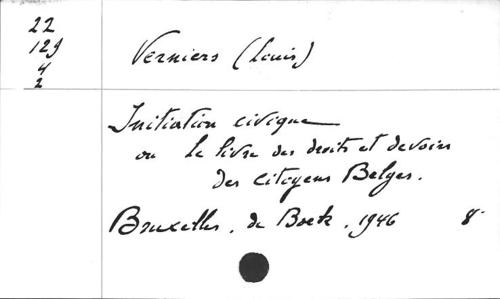 22
129
4
2
Verniers (Louis)
Initiation civique
ou le livre des droits et devoirs
des citoyens Belges.
Bruxelles, de Boeck, 1946 8°